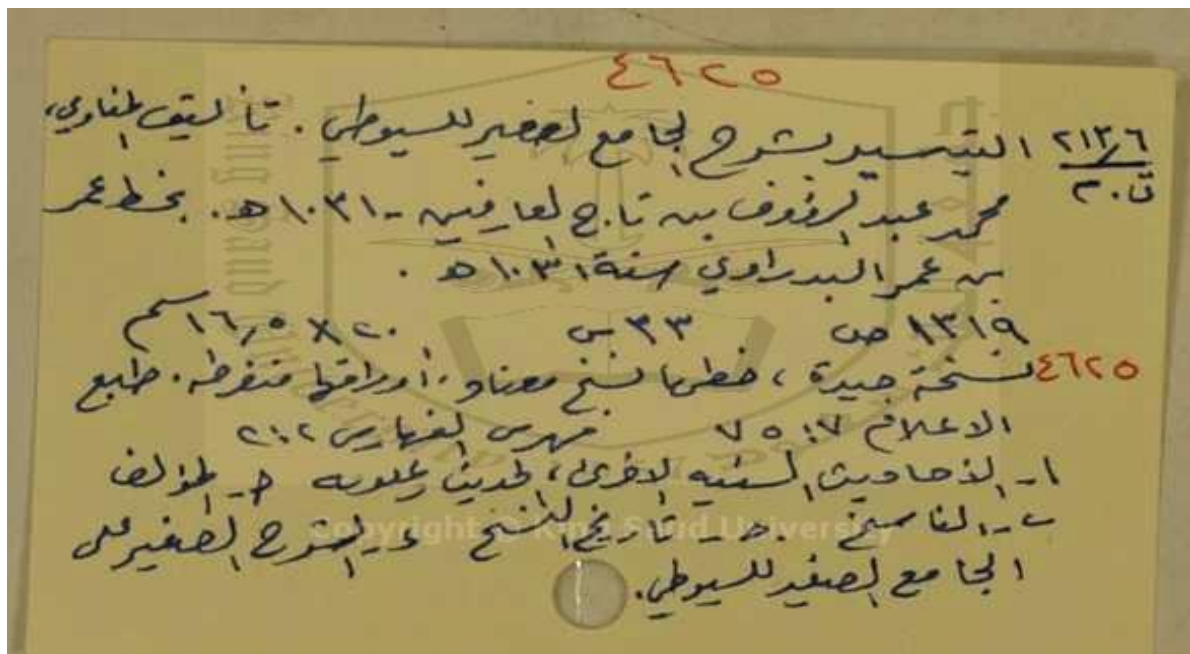 ٤٦٢٥
٢١٣٫٦ التيسير بشرح الجامع الصغير للسيوطي . تأليف المناوي،
ت٠٣٠ محمد عبد الرؤوف بن تاج العارفين -١٠٣١هـ. بخط عمر
بن عمر البدراوي سنة ١٠٣١هـ .
١٣١٩ ص ٣٣ س ٢٠ × ١٦٫٥ سم
٤٦٢٥ نسخة جيدة ، خطها نسخ معتاد ، أوراقها منفرطه . طبع
الاعلام ٧ : ٧٥ فهرس الفهارس ٢ : ٢
١- الأحاديث السنيه الاخرى، الحديث وعلومه أ- المؤلف
ب- الناسخ ج- تاريخ النسخ د- الشرح الصغير على
الجامع الصغير للسيوطي.
Copyright © King Saud University